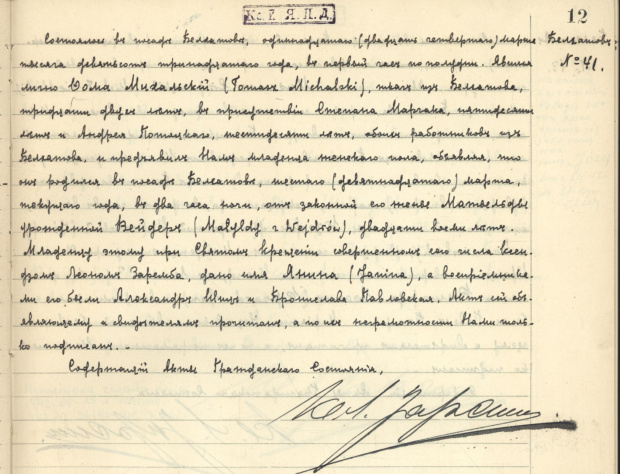 Кс. Л. Я. П. Д.
12
Состоялось въ посадѣ Белхатовѣ, одиннадцатаго (двадцать четвертаго) марта
Белхатовъ
№ 41.
тысяча девятьсотъ тринадцатаго года, въ первый часъ по полудни. Явился
лично Ѳома Михальскій (Tomasz Michalski), ткачъ изъ Белхатова,
тридцати двухъ лѣтъ, въ присутствіи Степана Марчака, пятидесяти
лѣтъ и Андрея Потоцкаго, шестидесяти лѣтъ, обоихъ работниковъ изъ
Белхатова, и предъявилъ Намъ младенца женскаго пола, объявляя, что
онъ родился въ посадѣ Белхатовѣ, шестаго (девятнадцатаго) марта,
текущаго года, въ два часа ночи, отъ законной его жены Матыльды
урожденной Вейдеръ (Matyldy z Wejdrów), двадцати восьми лѣтъ.
Младенцу этому при Святомъ Крещеніи совершенномъ сего числа Ксен-
дзомъ Леономъ Заремба, дано имя Янина (Janina), а воспріемника-
ми его были Александръ и Бронислава Павловская. Актъ сей объ-
являющему и свидѣтелямъ прочитанъ, а по ихъ неграмотности Нами толь-
ко подписанъ. –
Содержащій Акты Гражданскаго Состоянія,
Кс. Л. Заремба